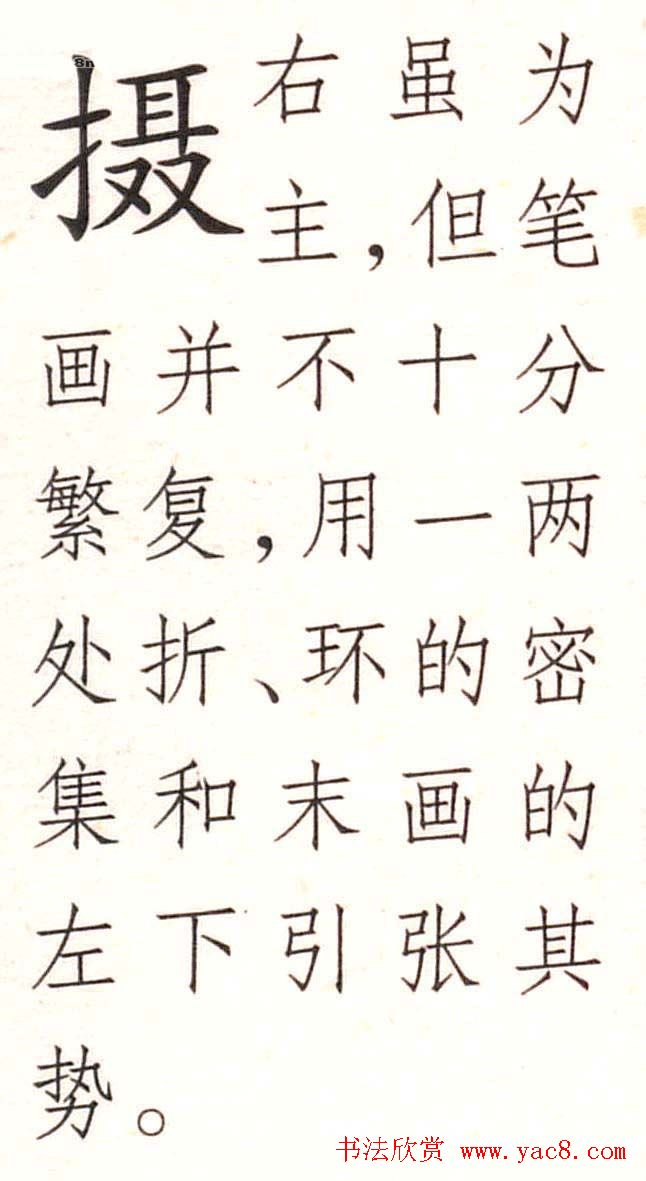 摄 右虽为
主，但笔
画并不十分
繁复，用一两
处折、环的密
集和末画的
左下引张其
势。
书法欣赏 www.yac8.com